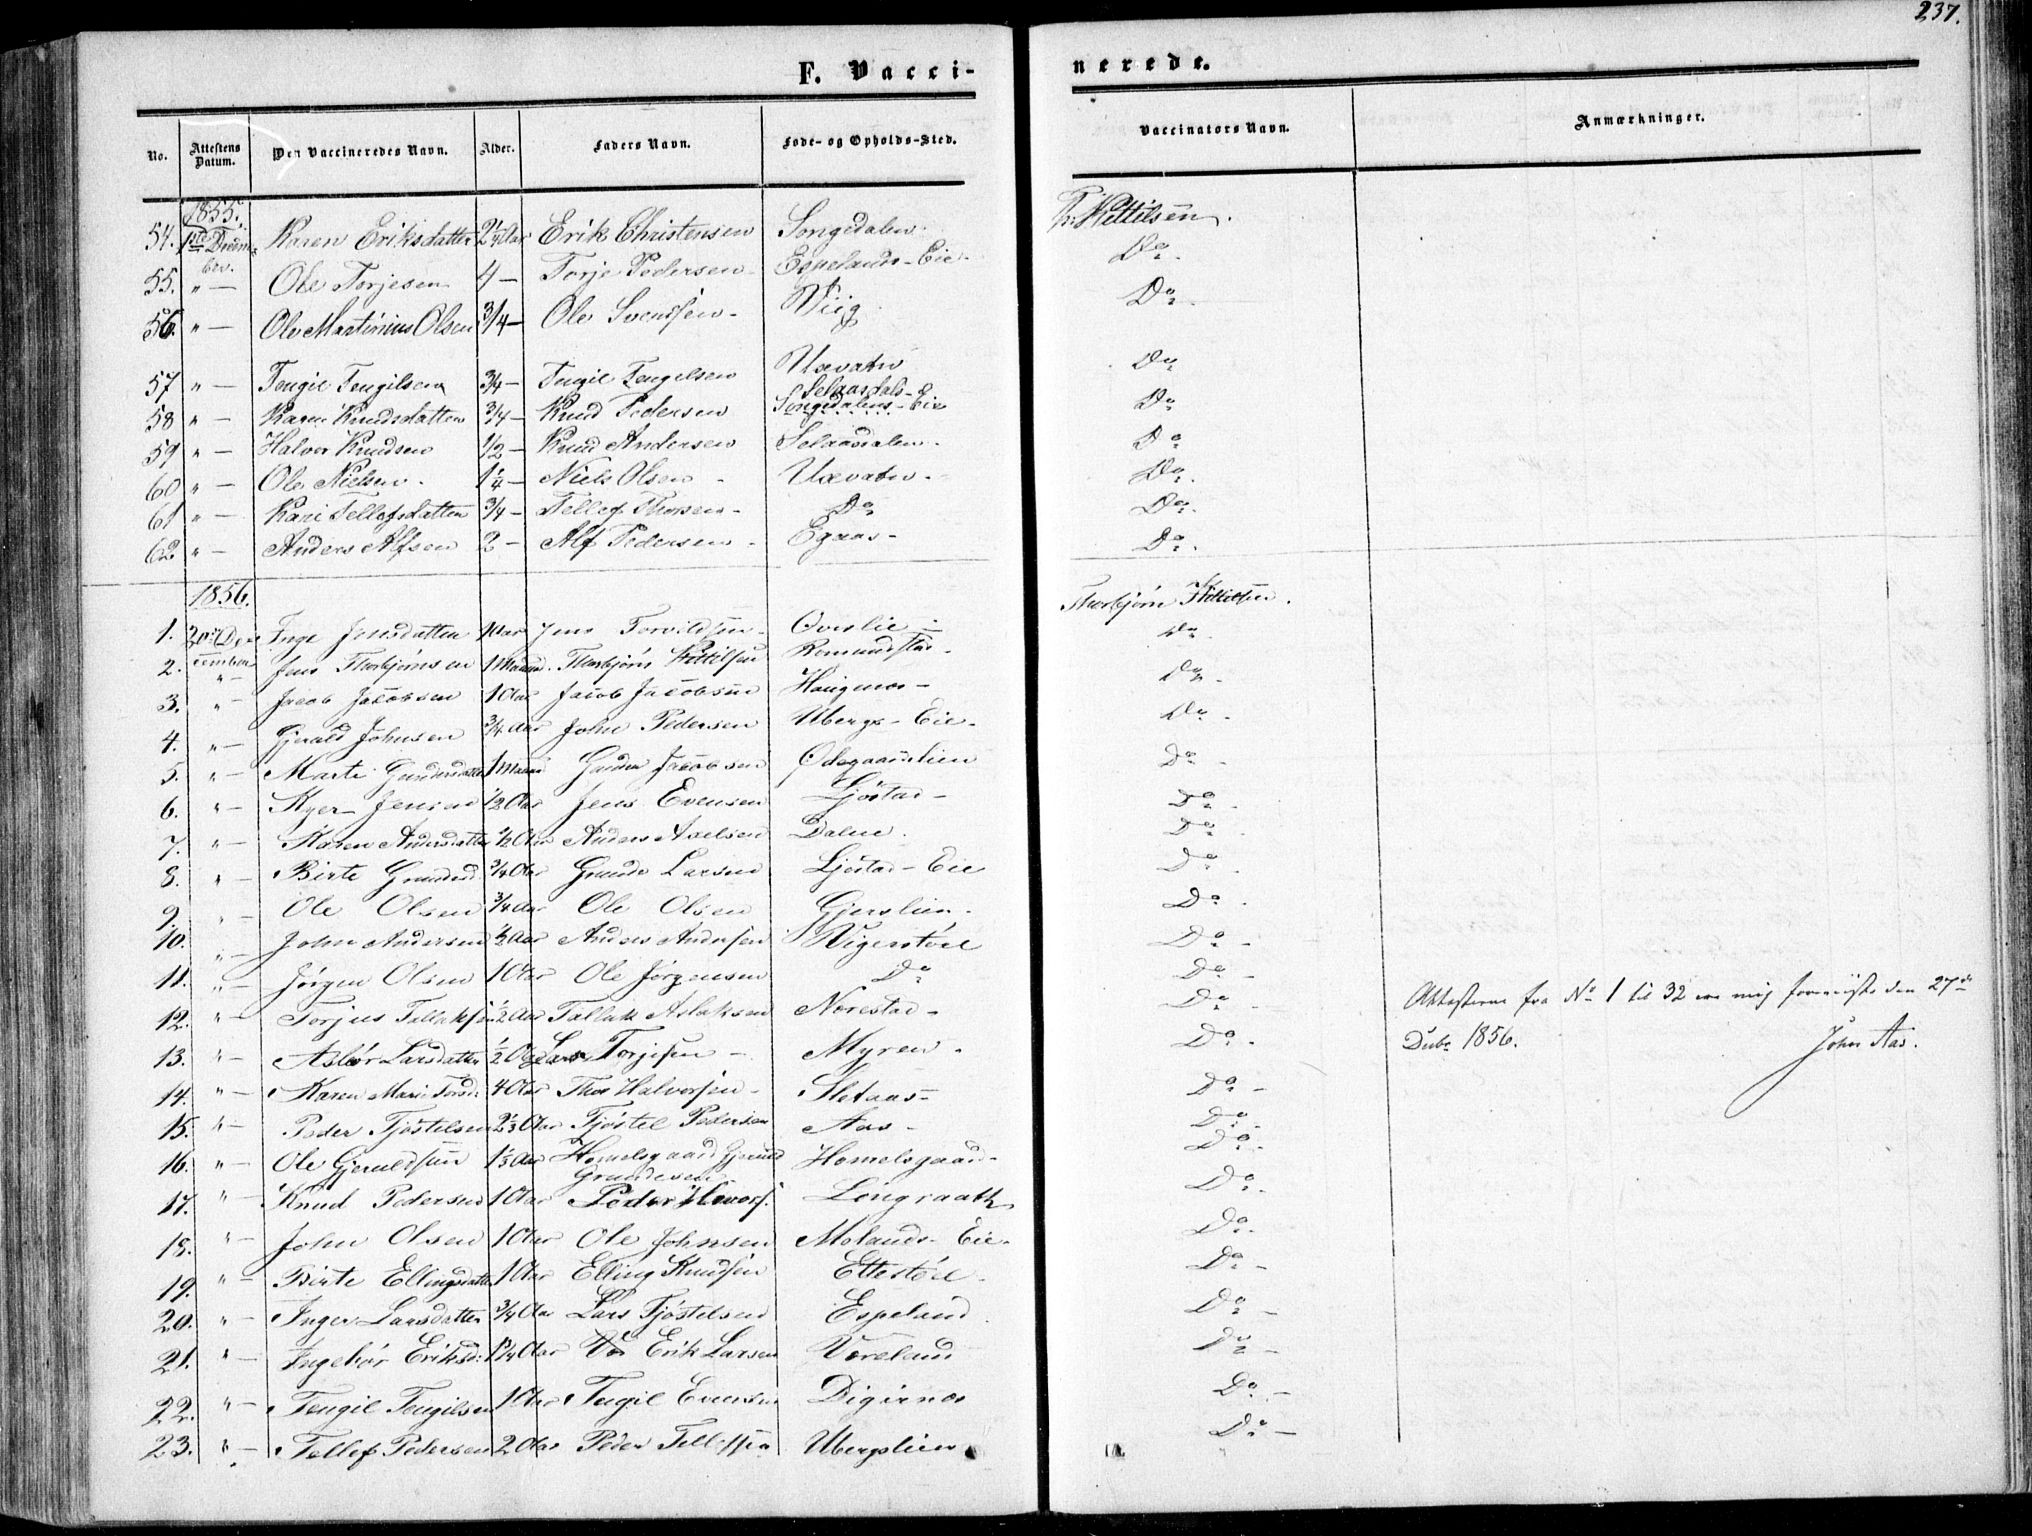 237.
F. Vacci-
nerede.
No. Attestens Datum. Den Vaccineredes Navn. Alder. Faders Navn. Føde- og Opholds-Sted. Vaccinators Navn. Anmærkninger.
1855.
54. 1ste Decem- Karen Eriksdatter 2¼ Aar Erik Christensen Songedalen Th. Kittilsen.
ber.
55. " — Ole Torjesen 4 — Torje Pedersen Espelands-Eie. Do.
56. " — Ole Martinius Olsen 3/4 — Ole Svensen Wiig Do.
57 " — Tengil Tengilsen 3/4 — Tengil Tengelsen Uævatn Do
Selaasdals-
58 " — Karen Knudsdatter 3/4 — Knud Pedersen Songedalens-Eie Do
59 " — Halvor Knudsen 1/2 — Knud Andersen Selaasdalen. Do
60 " — Ole Nielsen 1¼ — Niels Olsen Uævatn. Do.
61 " — Kari Tellefsdatter 3/4 — Tellef Thorsen Do Do.
62 " — Anders Alfsen 2 — Alf Pedersen Egaas Do.
1856.
Thorbjørn Kittilsen.
1. 20de De- Inge Jensdatter 1 Aar Jens Torvildsen Overlie Do.
cember
2. " Jens Thorbjørnsen 1 Maaned. Thorbjørn Kittilsen Romundstad Do.
3. " — Jacob Jacobsen 1 Aar Jacob Jacobsen Haugenes Do
4. " — Gjerald Johnsen 3/4 Aar John Pedersen Ubergs-Eie. Do
5. " — Marte Gundersdatter 1 Maaned Gunder Jacobsen Ødegaardslien Do
6. " — Jensen 1/2 Aar Jens Evensen Ljøstad Do.
7. " — Karen Andersdatter 1/2 Aar Anders Axelsen Dalene Do.
8. " — Birte Grundesd 3/4 Aar Grunde Larsen Ljøstad-Eie Do.
9. " Ole Olsen 3/4 Aar Ole Olsen Gjerslien. Do.
10. " — John Andersen 1/2 Aar Anders Andersen Vigerstøel Do
11. " — Jørgen Olsen 1 Aar Ole Jørgensen Do Do
12. " — Torjus Tallaksen 1/2 Aar Tallak Aslaksen Norestad Do
Attesterne fra No 1 til 32 ere mig foreviiste den 27de
Decbr 1856. John Aas.
13. " — Asbør Larsdatter 1/2 Aar Lars Torjesen Myren. Do.
14. " — Karen Marie Torsd: 4 Aar Thor Halvorsen Sletaas Do
15. " — Peder Tjøstelsen 2⅓ Aar Tjøstel Pedersen Aas Do.
16. " — Ole Gjeraldsen 1⅓ Aar Homelsgaard Gjerald Homelsgaard Do.
Grundesen
17. " — Knud Pedersen 1 Aar Peder Longraath Do.
18. " — John Olsen 1 Aar Ole Johnsen Molands-Eie. Do.
19. " — Birte Ellingsdatter 1 Aar Elling Knudsen Ettestøel Do.
20. " — Inger Larsdatter 3/4 Aar Lars Tjøstelsen Espeland Do
21. " — Ingebør Eriksd: 1¼ Aar Erik Larsen Voreland Do
22. " — Tengil Tengilsen 1 Aar Tengil Evensen Digernes Do
23. " — Tellef Pedersen 2 Aar Peder Tellefsen Ubergslien Do